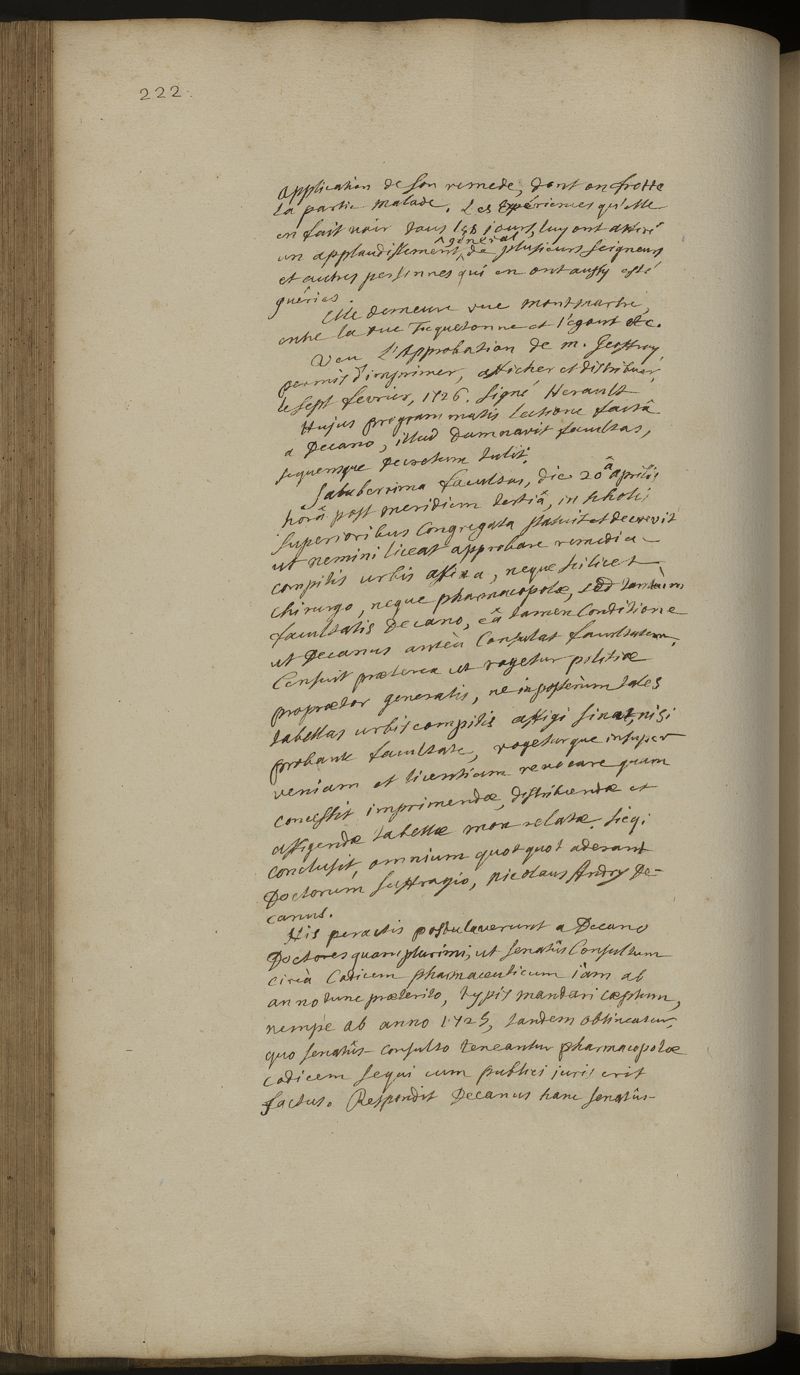 222.
application de son remede, dont on frotte
la partie malade. Les expériences qu'elle
en fait voir tous les jours, luy ont attiré
un applaudissement général de plusieurs seigneurs
et autres personnes qui en ont aussy esté
guéries.
Elle demeure rue montmartre,
entre la rue Tiquetonne et l'égout etc.
Veu l'Approbation de m. Geoffroy,
permis d'imprimer, afficher et distribuer,
le sept fevrier, 1726. signé Herault
Hujus programmatis lectione factâ
a Decano, illud damnavit facultas,
sequensque Decretum tulit.
Saluberrima facultas, die 20â aprilis
horâ post meridiem tertiâ, in scholis
superioribus Congregata statuit et decrevit
ut nemini liceat approbare remedia
compitis urbis affixa, neque scilicet
chirurgo, neque pharmacopolæ, sed tantùm
facultatis Decano, eâ tamen Conditione
ut Decanus anteà Consulat facultatem,
Censuit præterea ut rogetur politiæ
proprætor generalis, ne in posterùm tales
tabellas urbis compitis affigi sinat, nisi
probante facultate, rogeturque insuper
veniam et licentiam revocare quam
concessit imprimendæ, distribuendæ et
affigendæ tabellæ mox relatæ. sicq;
conclusit, omnium quotquot aderant
Doctorum suffragio, Nicolaus Andry De-
canus.
His peractis postulaverunt a Decano
Doctores quamplurimi, ut senatûs Consultum
circà Codicem pharmaceuticum iam ab
anno tunc præterito, typis mandari cæptum,
nempè ab anno 1725, tandem obtineatur,
quo senatûs-consulto teneantur pharmacopolæ
codicem sequi cum publici iuris erit
factus. Respondit Decanus hanc senatûs-